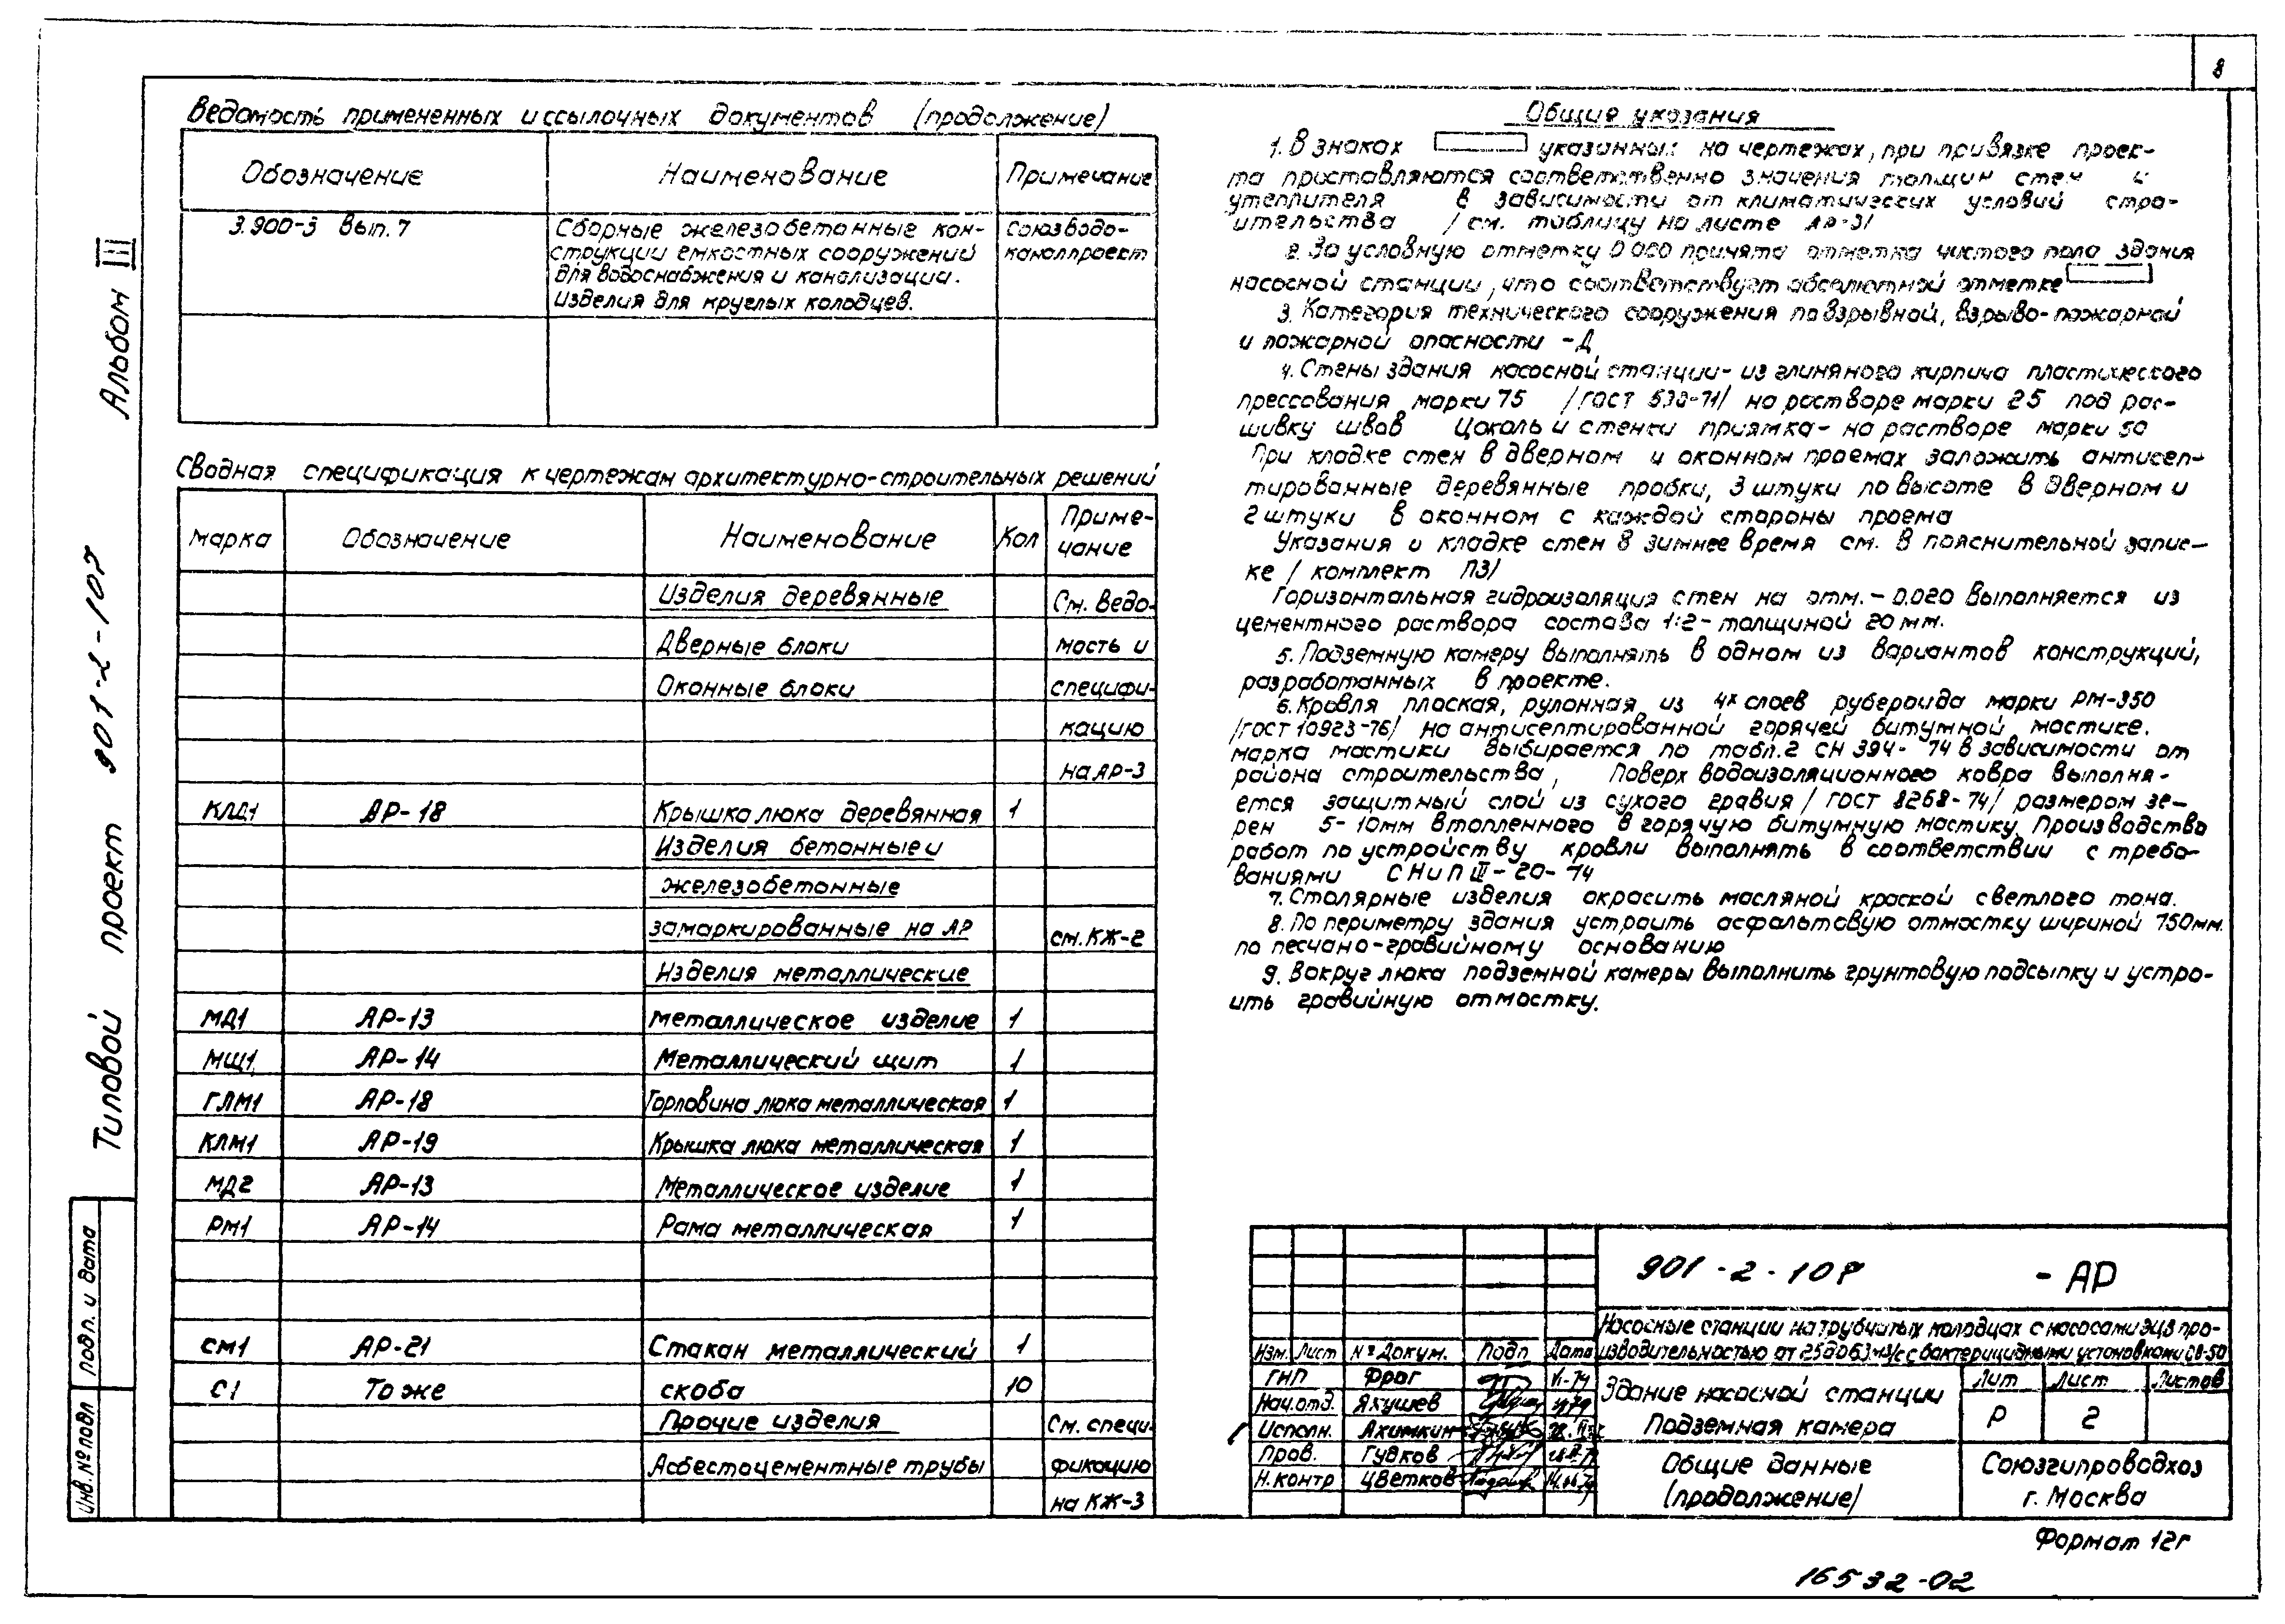 8
Ведомость примененных и ссылочных документов (продолжение)
Обозначение Наименование Примечание
3.900-3 Вып. 7 Сборные железобетонные кон- Союзводо-
струкции емкостных сооружений каналпроект
для водоснабжения и канализации.
Изделия для круглых колодцев.
Сводная спецификация к чертежам архитектурно-строительных решений
Марка Обозначение Наименование Кол Приме-
чание
Изделия деревянные См. Ведо-
Дверные блоки мость и
Оконные блоки специфи-
кацию
на АР-3
КЛД1 АР-18 Крышка люка деревянная 1
Изделия бетонные и
железобетонные
замаркированные на АР см. КЖ-2
Изделия металлические
МД1 АР-13 Металлическое изделие 1
МЩ1 АР-14 Металлический щит 1
ГЛМ1 АР-18 Горловина люка металлическая 1
КЛМ1 АР-19 Крышка люка металлическая 1
МД2 АР-13 Металлическое изделие 1
РМ1 АР-14 Рама металлическая 1
СМ1 АР-21 Стакан металлический 1
С1 То же скоба 10
Прочие изделия См. специ-
Асбестоцементные трубы фикацию
на КЖ-3
Общие указания
1. В знаках указанных на чертежах, при привязке проек-
та проставляются соответственно значения толщин стен и
утеплителя в зависимости от климатических условий стро-
ительства / см. таблицу на листе АР-3/
2. За условную отметку 0.000 принята отметка чистого пола здания
насосной станции, что соответствует абсолютной отметке
3. Категория технического сооружения по взрывной, взрыво-пожарной
и пожарной опасности - Д
4. Стены здания насосной станции- из глиняного кирпича пластического
прессования марки 75 /ГОСТ 530-71/ на растворе марки 25 под рас-
шивку швов Цоколь и стенки приямка- на растворе марки 50
При кладке стен в дверном и оконном проемах заложить антисеп-
тированные деревянные пробки, 3 штуки по высоте в дверном и
2 штуки в оконном с каждой стороны проема
Указания о кладке стен в зимнее время см. в пояснительной запис-
ке / комплект ПЗ/
Горизонтальная гидроизоляция стен на отм. - 0.020 выполняется из
цементного раствора состава 1:2- толщиной 20 мм.
5. Подземную камеру выполнять в одном из вариантов конструкций,
разработанных в проекте.
6. Кровля плоская, рулонная из 4х слоев рубероида марки РМ-350
/ГОСТ 10923-76/ на антисептированной горячей битумной мастике.
марка мастики выбирается по табл. 2 СН 394- 74 в зависимости от
района строительства, Поверх водоизоляционного ковра выполня-
ется защитный слой из сухого гравия / ГОСТ 8268-74/ размером зе-
рен 5-10мм втопленного в горячую битумную мастику. Производство
работ по устройству кровли выполнять в соответствии с требо-
ваниями СНиП III-20-74
7. Столярные изделия окрасить масляной краской светлого тона.
8. По периметру здания устроить асфальтовую отмостку шириной 750мм.
по песчано-гравийному основанию
9. Вокруг люка подземной камеры выполнить грунтовую подсыпку и устро-
ить гравийную отмостку.
Альбом III
Типовой проект 901-2-107
Подп. и дата
Инв. № подл
901-2-107 -АР
Насосные станции на трубчатых колодцах с насосами ЭЦВ про-
изводительностью от 25 до 63 м3/с с бактерицидными установками ОВ-50
Изм. Лист № Докум. Подп Дата
ГИП Фрог
Нач. отд. Якушев
Исполн. Ахимкин
Пров. Гудков
Н. контр Цветков
Здание насосной станции
Подземная камера
Лит Лист Листов
Р 2
Общие данные
(продолжение)
Союзгипроводхоз
г. Москва
Формат 12г
16532-02